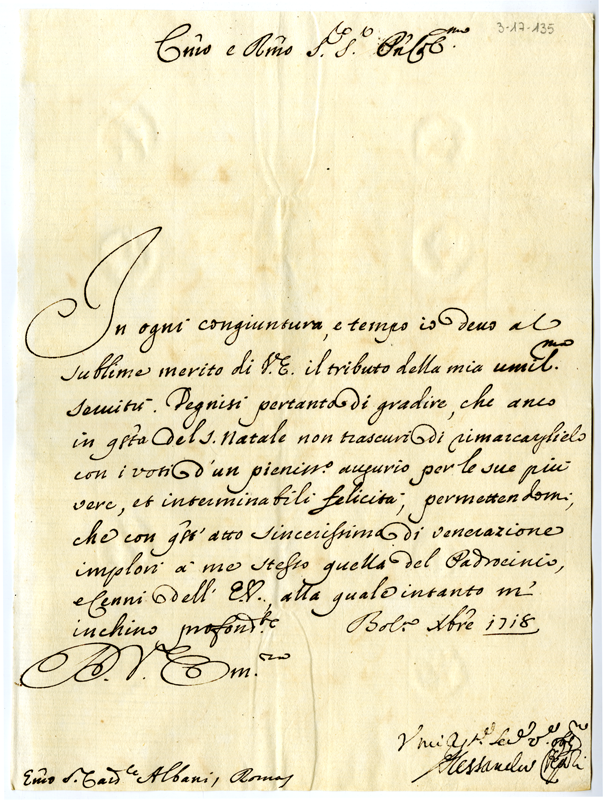 3-17-135
Emo e Rmo S.r S.r P'ron Colmo
In ogni congiuntura, e tempo io devo al
sublime merito di V.E. il tributo della mia umil.ma
servitù. Degnisi pertanto di gradire, che anco
in q'sta del S. Natale non trascuri di rimarcarglielo
con i voti d'un pieniss.o augurio per le sue più
vere, et interminabili felicità, permettendomi,
che con q'st' atto sincerissimo di venerazione
implori à me stesso quella del Padrocinio,
e Cenni dell' E.V., alla quale intanto m'
inchino profond.te Bol.a Xbre 1718
D. V. Em.za
Alessandro
Emo S. Card.le Albani, Roma